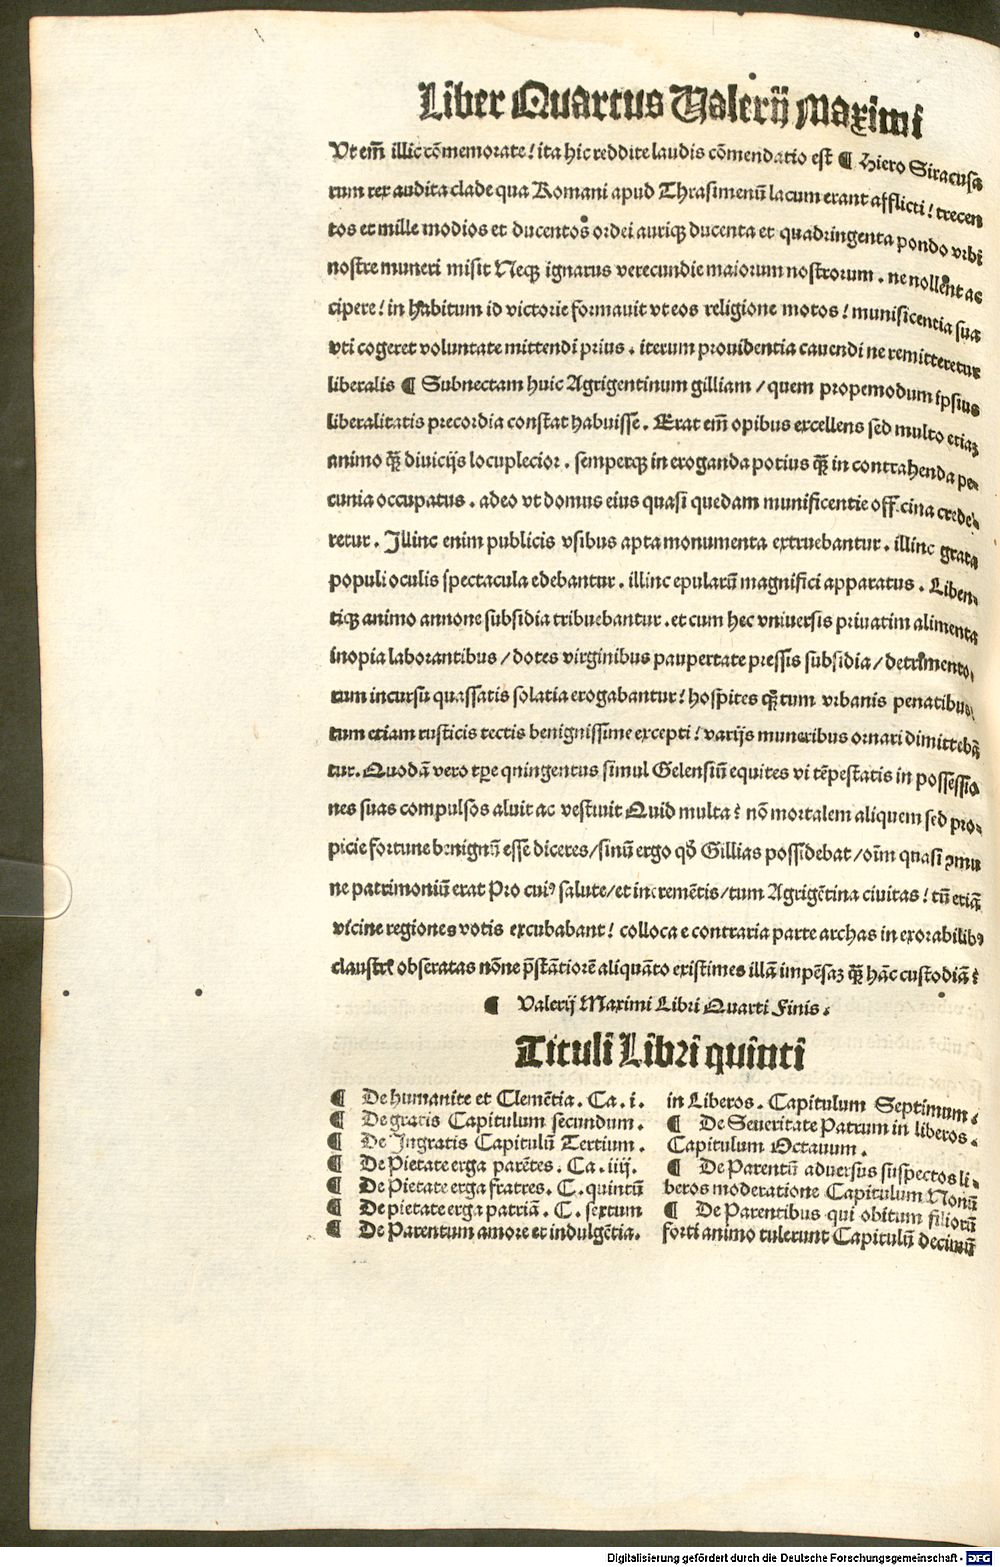 Liber Quartus Valerij Maximi
Vt em̄ illic cōmemorate! ita hic reddite laudis cōmendatio est ¶ Hiero Siracusa
rum rex audita clade qua Romani apud Thrasimenū lacum erant afflicti! trecen
tos et mille modios et ducentos ordei auriqꝫ ducenta et quadringenta pondo vrbi
nostre muneri misit Neqꝫ ignarus verecundie maiorum nostrorum . ne nollent ac
cipere! in habitum id victorie formauit vt eos religione motos! munificentia sua
vti cogeret voluntate mittendi prius . iterum prouidentia cauendi ne remitteretur
liberalis ¶ Subnectam huic Agrigentinum gilliam / quem propemodum ipsius
liberalitatis precordia constat habuisse . Erat em̄ opibus excellens sed multo etiaꝫ
animo qꝫ̄ diuicijs locuplecior . semperqꝫ in eroganda potius qꝫ̄ in contrahenda pe-
cunia occupatus . adeo vt domus eius quasi quedam munificentie officina crede-
retur . Illinc enim publicis vsibus apta monumenta extruebantur . illinc grata
populi oculis spectacula edebantur . illinc epularū magnifici apparatus . Liben-
tiqꝫ animo annone subsidia tribuebantur . et cum hec vniuersis priuatim alimenta
inopia laborantibus / dotes virginibus paupertate pressis subsidia / detrimento-
rum incursu quassatis solatia erogabantur! hospites qꝫ̄ tum vrbanis penatibus!
tum etiam rusticis tectis benignissime excepti! varijs muneribus ornari dimittebā
tur. Quodā vero tꝑe qningentus simul Gelensiū equites vi tēpestatis in possessio
nes suas compulsos aluit ac vestiuit Quid multa? nō mortalem aliquem sed pro-
picie fortune benignū esse diceres / sinū ergo qd̄ Gillias possidebat / oīm quasi ꝯmu
ne patrimoniū erat Pro cuiꝰ salute / et incremētis / tum Agrigētina ciuitas! tū etiā
vicine regiones votis excubabant! colloca e contraria parte archas in exorabilibꝰ
claustrꝭ obseratas nōne p̄stātiorē aliquāto existimes illā impēsaꝫ qꝫ̄ hāc custodiā?
¶ Valerij Maximi Libri Quarti Finis .
Tituli Libri quinti
¶ De humanite et Clemētia . Ca . i .
¶ De gratis Capitulum secundum .
¶ De Ingratis Capitulū Tertium .
¶ De Pietate erga parētes . Ca . iiij .
¶ De Pietate erga fratres . C . quintū
¶ De pietate erga patriā . C . sextum
¶ De Parentum amore et indulgētia .
in Liberos . Capitulum Septimum .
¶ De Seueritate Patrum in liberos .
Capitulum Octauum .
¶ De Parentū aduersus suspectos li-
beros moderatione Capitulum Nonū
¶ De Parentibus qui obitum filiorū
forti animo tulerunt Capitulū decimū
Digitalisierung gefördert durch die Deutsche Forschungsgemeinschaft - DFG